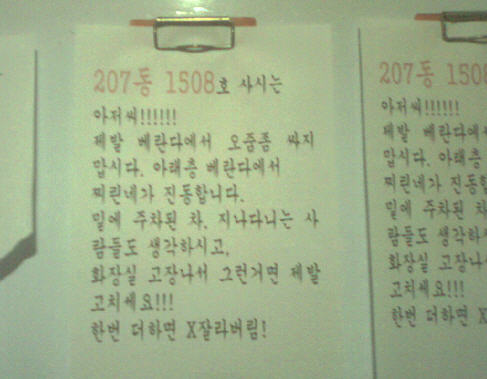 207동 1508호 사시는
아저씨!!!!!!
제발 베란다에서 오줌좀 싸지
맙시다. 아래층 베란다에서
찌린네가 진동합니다.
밑에 주차된 차, 지나다니는 사
람들도 생각하시고,
화장실 고장나서 그런거면 제발
고치세요!!!
한번 더하면 X잘라버림!
207동 150
아저씨!!!!!!
제발 베란다에
맙시다. 아래
찌린네가 진동합
밑에 주차된 차
람들도 생각하
화장실 고장나
고치세요!!!
한번 더하면